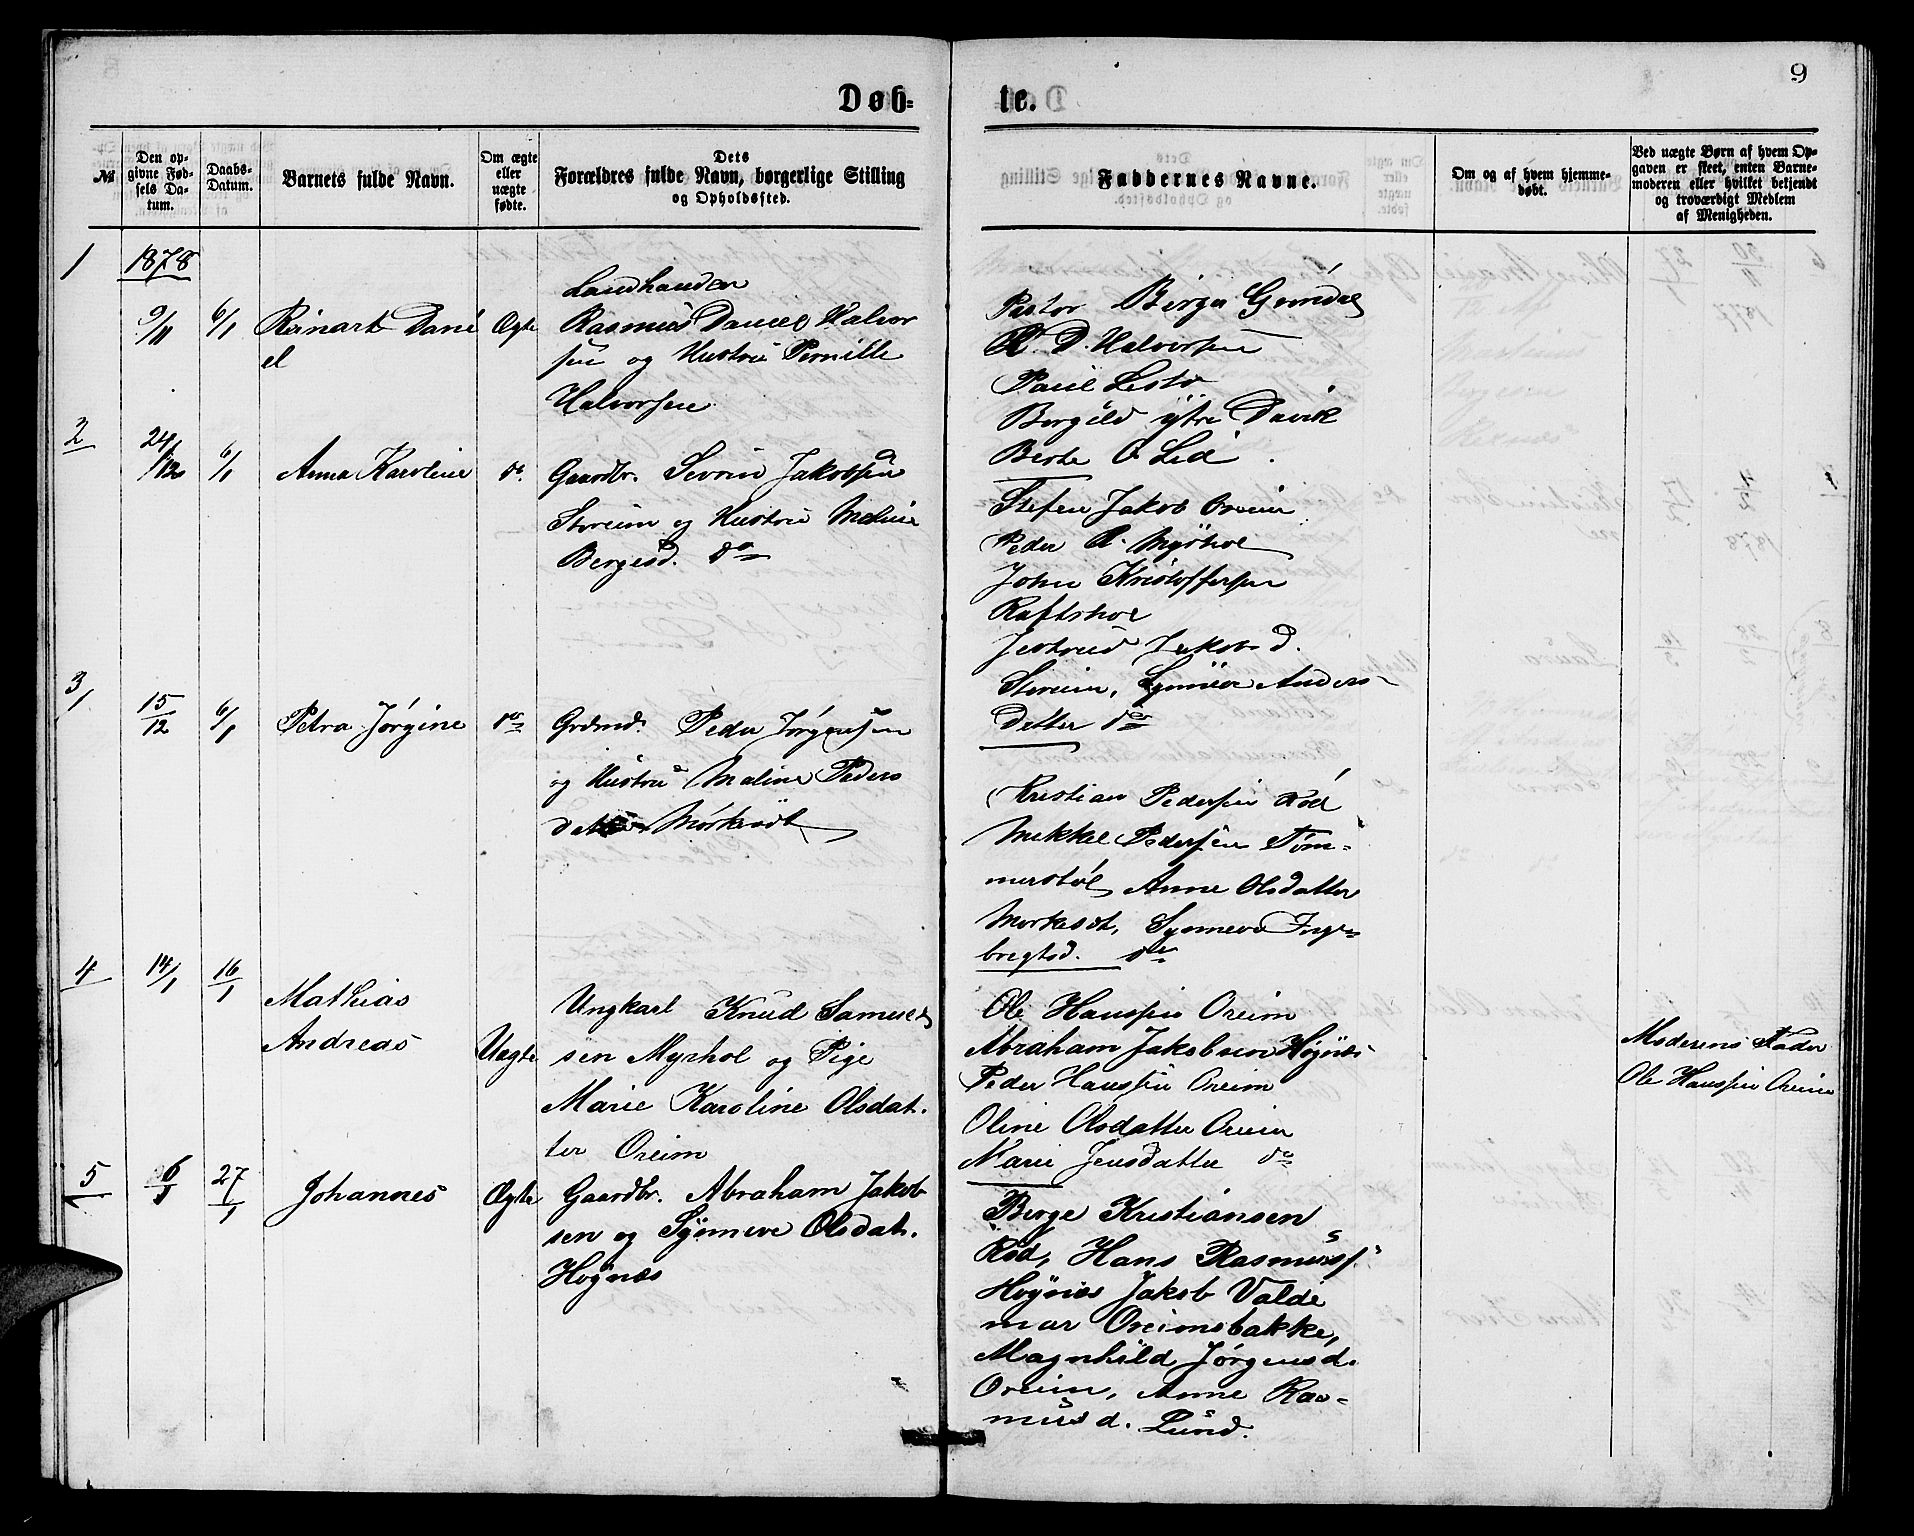 9
Døb-
te.
№
Den op-
givne Fød-
sels Da-
tum.
Daabs-
Datum.
Barnets fulde Navn.
Om ægte
eller
uægte
fødte.
Dets
Forældres fulde Navn, borgerlige Stilling
og Opholdssted.
Faddernes Navne.
Om og af hvem hjemme-
døbt.
Ved uægte Børn af hvem Op-
gaven er skeet, enten Barne-
moderen eller hvilket bekjendt
og troværdigt Medlem
af Menigheden.
1
1878
9/11
6/1
Reinart Dani
el
Ægte
Landhandler
Rasmus Daniel Halvor
sen og Hustru Pernille
Halvorsen
Pastor Birger
R. D. Halvorsen
Paul Lestø
Borgild ytre Davik
Berte O Lid
2
24/12
6/1
Anna Karoline
do.
Gaardbr. Severin Jakobsen
Storeim og Hustru Maline
Bergesd. do
Stefen Jakob Oreim
Peder A. Myrhol
John Kristoffersen
Raftshol
Jertrud Jakobsd.
Storeim, Synneve Anders
Datter do
3
15/12
6/1
Petra Jørgine
do
Grdmd. Peder Jørgensen
og Hustru Maline Peders
datter
Kristian Pedersen Rød
Mikkel Pedersen Tøm-
merstøl Anne Olsdatter
Synneve Inge-
bregtsd. do
4
14/1
16/1
Mathias
Andreas
Uægte
Ungkarl Knud Samuel
sen Myrhol og Pige
Marie Karoline Olsdat.
ter Oreim
Ole Hanssen Oreim
Abraham Jakobsen Høynæs
Peder Hanssen Oreim
Oline Olsdatter Oreim
Marie Jensdatter do
Moderens Fader
Ole Hanssen Oreim
5
27/1
Johannes
Ægte
Gaardbr. Abraham Jakob
sen og Synneve Olsdat.
Høynæs
Berge Kristiansen
Rød, Hans Rasmuss.
Høynæs Jakob Valde
mar Oreimsbakke,
Magnhild Jørgensd.
Oreim, Anne Ras-
musd. Lund.